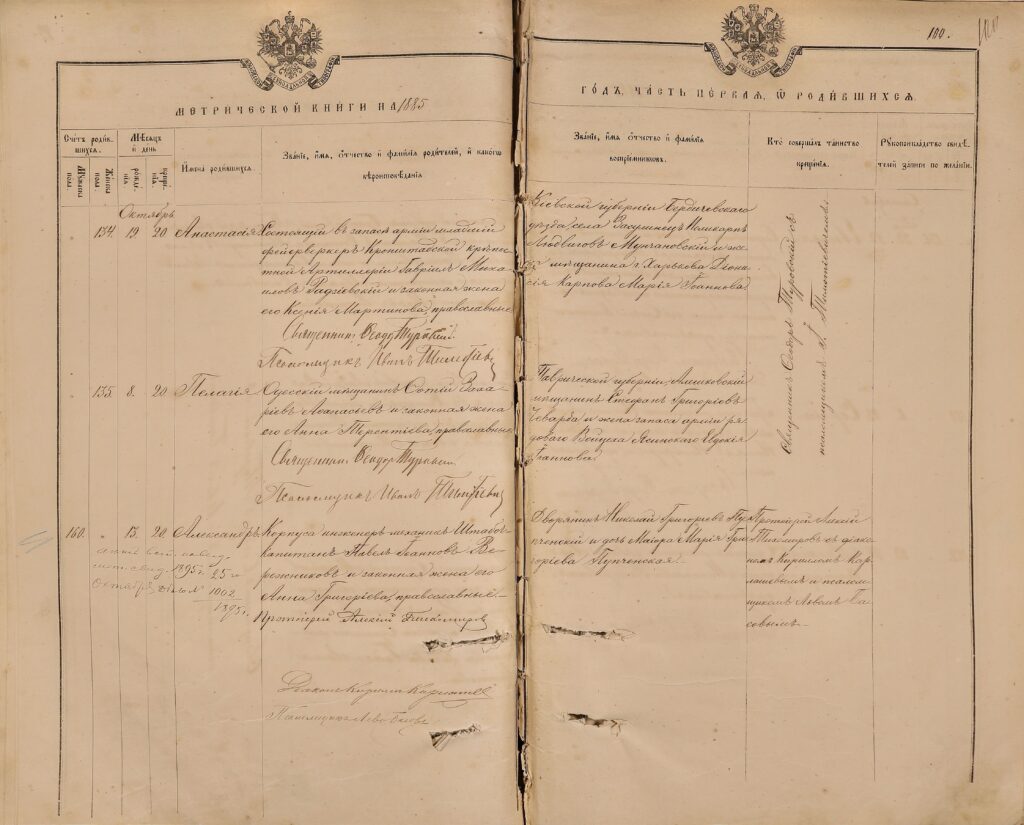 100.
100
МЕТРИЧЕСКОЙ КНИГИ НА 1885
ГОДЪ, ЧАСТЬ ПЕРВАЯ, Ѡ РОДИВШИХСЯ.
Счетъ родившихся.
Мужеска пола
Женска пола
Мѣсяцъ и день
рожденія
крещенія
Имена родившихся.
Званіе, имя, отчество и фамилія родителей, и какого вѣроисповѣданія
Званіе, имя, отчество и фамилія воспріемниковъ.
Кто совершалъ таинство крещенія.
Рукоприкладство свидѣтелей записи по желанію.
Октябрь
134 19 20 Анастасія
Состоящій въ запасѣ арміи младшій
фейерверкеръ Кронштадской крѣпо-
стной Артиллеріи Гавріилъ Миха-
иловъ Радзіевскій и законная жена
его Ксенія Мартинова, православные
Священникъ Ѳеодоръ Туровскій
Псаломщикъ Иванъ Тимоѳіевичъ
Кіевской губерніи Бердичевскаго
уѣзда, села Поликарпъ
Людвиговъ Мунчановскій и же-
на мѣщанина г. Харькова Діони-
сія Карпова Марія Іоаннова.
Священникъ Ѳеодоръ Туровскій съ
псаломщикомъ І. Тимоѳіевичемъ.
135 8 20 Пелагія
Одесскій мѣщанинъ Сотій Заха-
ріевъ Аѳанасьевъ и законная жена
его Анна Терентіева, православные
Священникъ Ѳеодоръ Туровскій
Псаломщикъ Иванъ Тимоѳіевичъ
Таврической губерніи, Алешковскій
мѣщанинъ Стефанъ Григоріевъ
Чеварба и жена запаса арміи ря-
доваго Войцеха Ясинскаго Евдокія
Іоаннова.
160 " 13 20 Александръ
Корпуса инженеръ-механикъ Штабсъ-
Капитанъ Павелъ Іоанновъ Ве-
режниковъ и законная жена его
Анна Григоріева, православные.
Протоіерей Алексій
Діаконъ Кириллъ
Псаломщикъ Левъ Басовъ
1895 г. 25го
Октября, дѣло № 1002
1895 г.
Дворянинъ Николай Григоріевъ Пуп-
ченскій и дочь Маіора Марія Гри-
горіева Пупченская.
Протоіерей Алексій
съ діако-
номъ Кирилломъ Кар-
и псалом-
щикомъ Львомъ Ба-
совымъ.